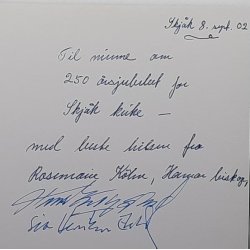 Skjåk 8. sept. 02
Til minne om
250 årsjubileet for
Skjåk kirke —
med beste hilsen fra
Rosemarie Köhn, Hamar biskop,